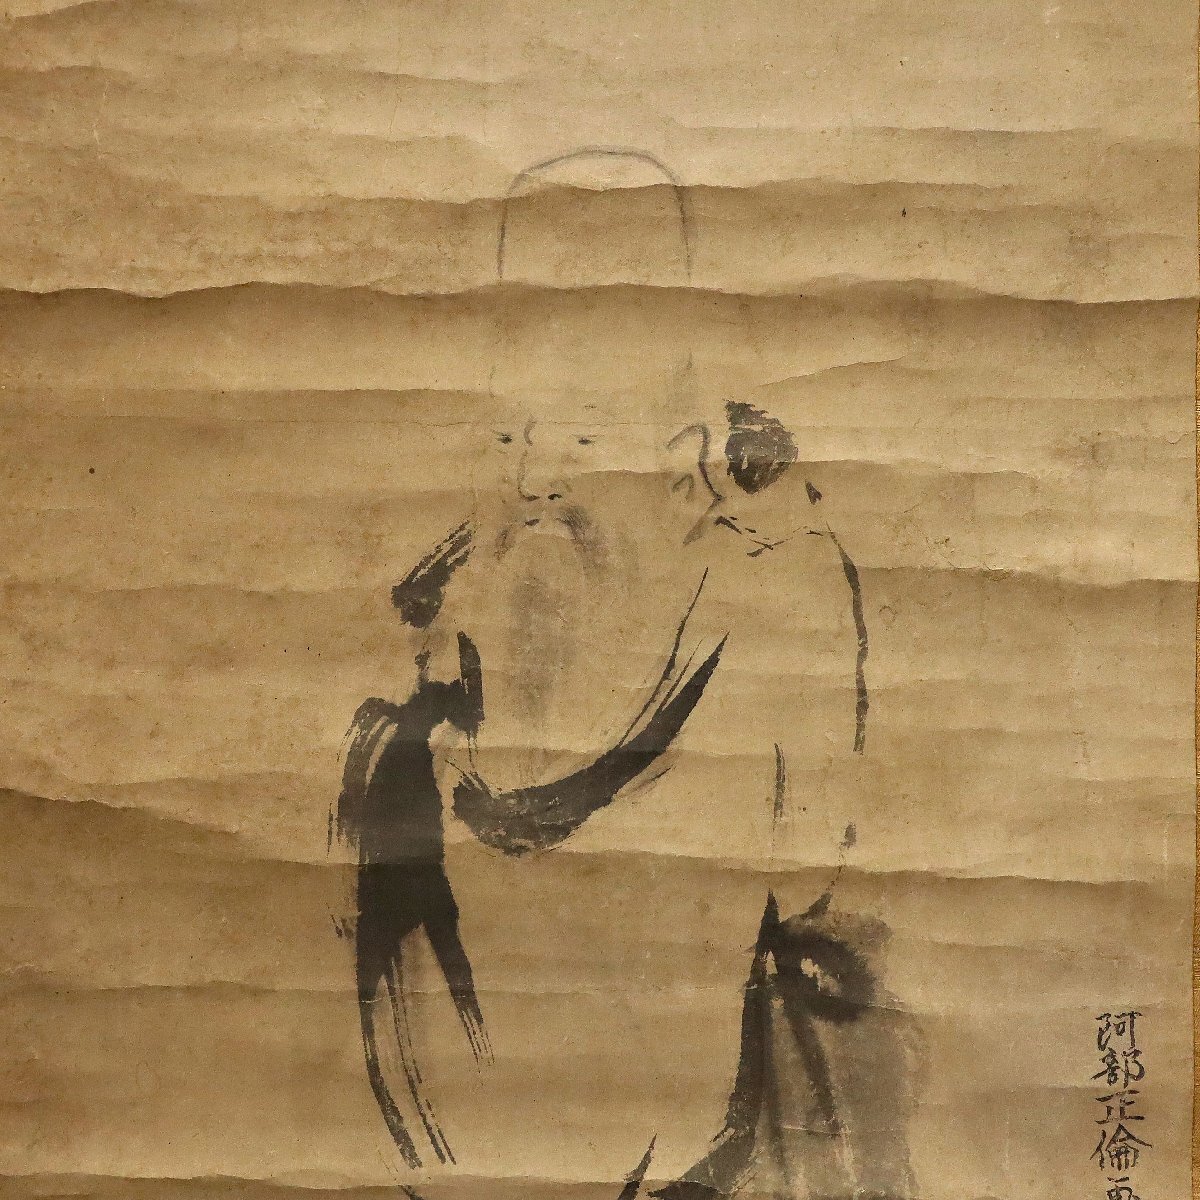 阿部正倫